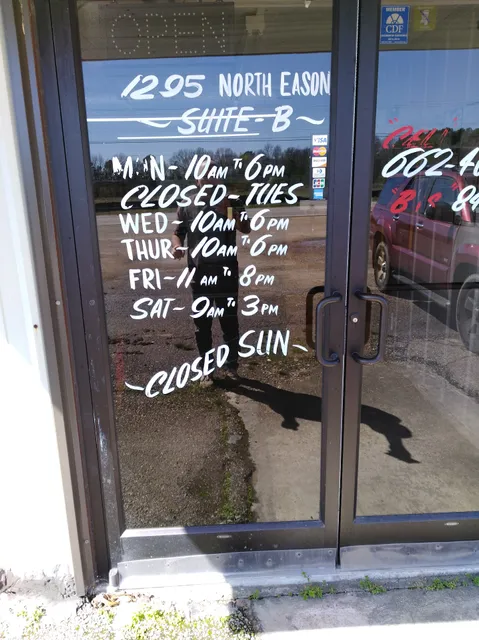 OPEN
1295 NORTH EASON
SUITE-B
M N-10AM TO 6PM
CLOSED-TUES
WED-10AM TO 6PM
THUR-10AM TO 6PM
FRI-11AM TO 8PM
SAT-9AM TO 3PM
CLOSED SUN
MEMBER
CDF
VISA
662-4
84